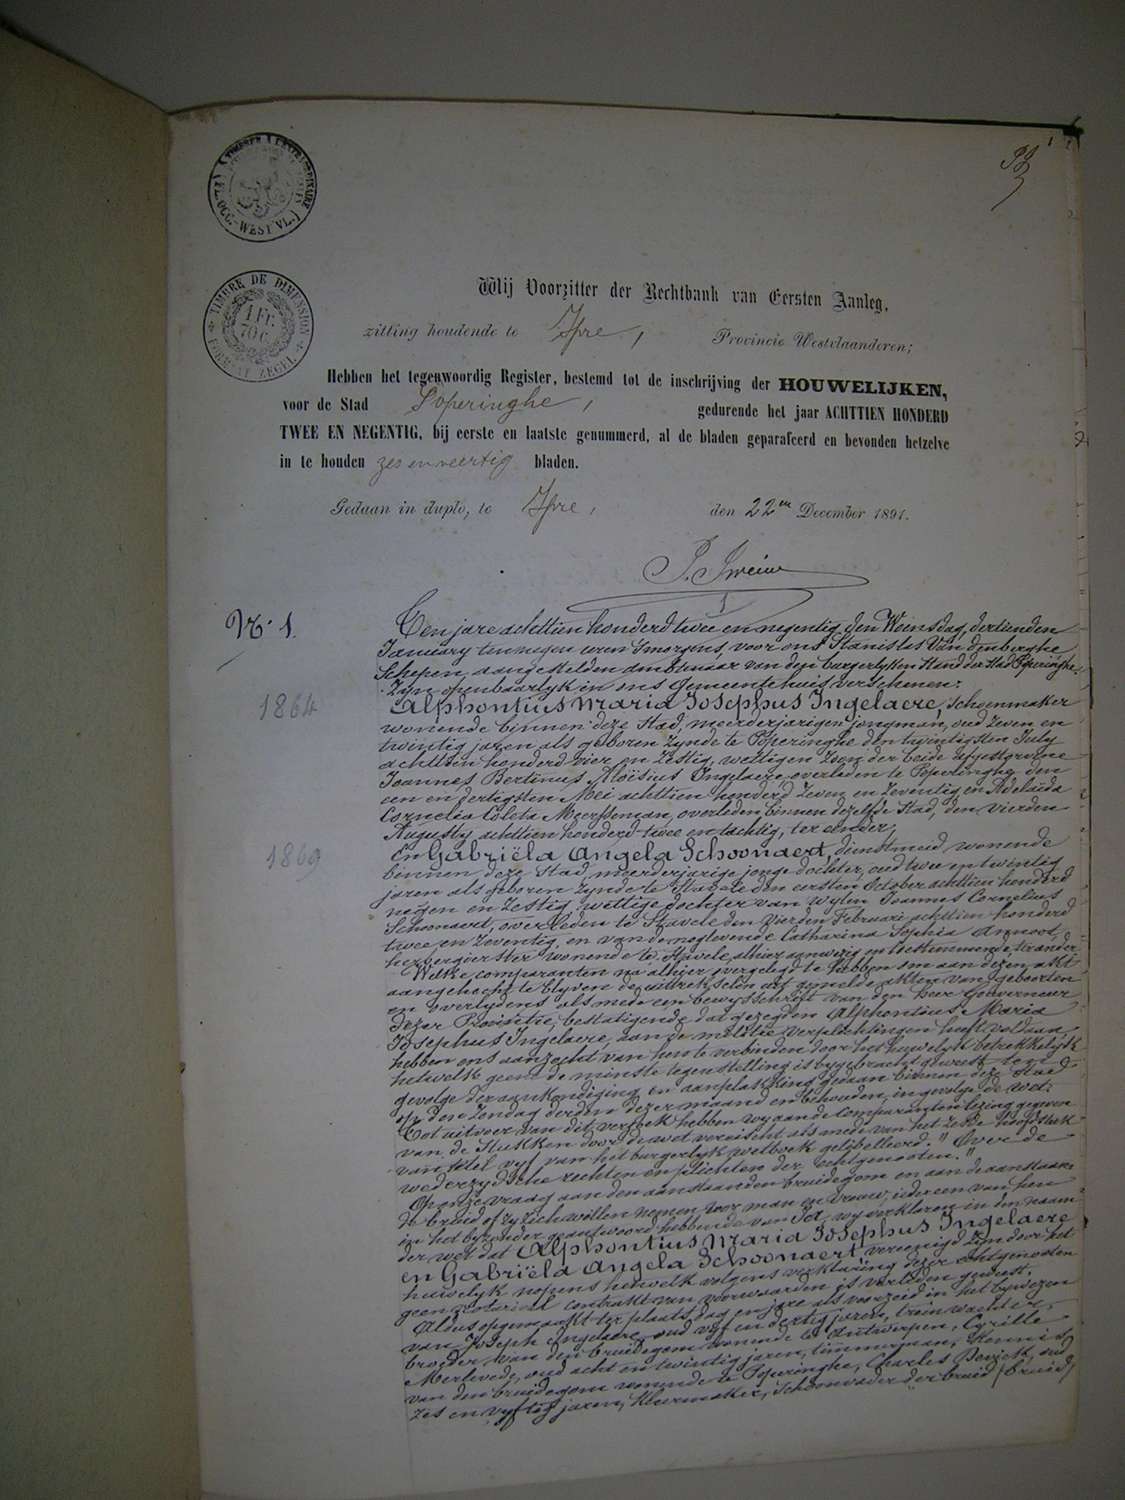 TIMBRE A L'EXTRAORDINAIRE
FL. OCC. - WEST VL.
TIMBRE DE DIMENSION
1 FR.
70 C.
FORMAAT ZEGEL
1
Wij Voorzitter der Rechtbank van Eersten Aanleg,
zitting houdende te Ypre, Provincie Westvlaanderen;
Hebben het tegenwoordig Register, bestemd tot de inschrijving der HOUWELIJKEN,
voor de Stad Poperinghe, gedurende het jaar ACHTTIEN HONDERD
TWEE EN NEGENTIG, bij eerste en laatste genummerd, al de bladen geparafeerd en bevonden hetzelve
in te houden zes en veertig bladen.
Gedaan in duplo, te Ypre, den 22en December 1891.
Nr 1.
Ten jare achttien honderd twee en negentig den Woensdag, dertienden
January ten negen uren 's morgens, voor ons Stanislas Vandenberghe
Schepen, aangestelden ambtenaar van den burgerlyken Stand der Stad Poperinghe,
Zyn openbaarlyk in ons Gemeentehuis verschenen:
1864
Alphontius Maria Josephus Ingelaere, Schoenmaker
wonende binnen deze Stad, meerderjarigen jongman, oud zeven en
twintig jaren als geboren zynde te Poperinghe den twintigsten July
achttien honderd vier en zestig, wettigen zoon der beide afgestorvene
Joannes Bertinus Aloïsius Ingelaere, overleden te Poperinghe den
een en dertigsten Mei achttien honderd zeven en zeventig en Adelaïda
Cornelia Coleta Meersseman, overleden binnen dezelfde Stad, den vierden
Augusty achttien honderd twee en tachtig, ter eender;
1869
En Gabriëla Angela Schoonaert, dienstmeid wonende
binnen deze Stad, meerderjarige jonge dochter, oud twee en twintig
jaren als geboren zynde te Stavele den eersten October achttien honderd
negen en zestig, wettige dochter van wylen Joannes Cornelius
Schoonaert, overleden te Stavele den vierden Februari achttien honderd
twee en zeventig, en van de noglevende Catharina Sophia Annoot,
herbergierster wonende te Stavele alhier aanwezig en toestemmende, ter ander
Welke comparanten na alhier overgelegd te hebben om aan dezen akt
aangehecht te blyven de uittreksels uit gemelde akten van geboorten
en overlydens als mede een bewysschrift van den heer Gouverneur
dezer Provintie, bestatigende dat gezegden Alphontius Maria
Josephus Ingelaere, aan de militie verplichtingen heeft voldaan,
hebben ons aanzocht van hen te verbinden door het huwelyk betrekkelyk
hetwelk geene de minste tegenstelling is bygebracht geweest ten
gevolge der aankondiging en aanplakking gedaan binnen deze Stad
op den Zondag derden dezer maand en behouden, in gevolge de wet.
Tot uitvoer van dit verzoek hebben wy aan de comparanten lezing gegeven
van de Stukken door de wet vereischt als mede van het zesde hoofdstuk
van titel vyf van het burgerlyk wetboek gelibelleerd: "Over de
wederzydsche rechten en plichten der echtgenooten."
Op onze vraag aan den aanstaanden bruidegom en aan de aanstaan-
de bruid of zy zich willen nemen voor man en vrouw, ieder een van hen
in het byzonder geantwoord hebbende van Ja, wy verklaren in den naam
der wet dat Alphontius Maria Josephus Ingelaere
en Gabriëla Angela Schoonaert vereenigd zyn door het
huwelyk nopens hetwelk volgens verklaring dezer echtgenooten
geen notarieel contrakt van voorwaarden is verleden geweest.
Aldus opgemaakt ter plaats, dag en jare als voorzeid in het bywezen
van Joseph Ingelaere, oud vyf en dertig jaren, treinwachter,
broeder van den bruidegom wonende te Antwerpen, Cyrille
Merlevede, oud acht en twintig jaren, timmerman, kennis
van den bruidegom wonende te Poperinghe, Charles oud
zes en vyftig jaren, kleermaker, Schoonvader der bruid